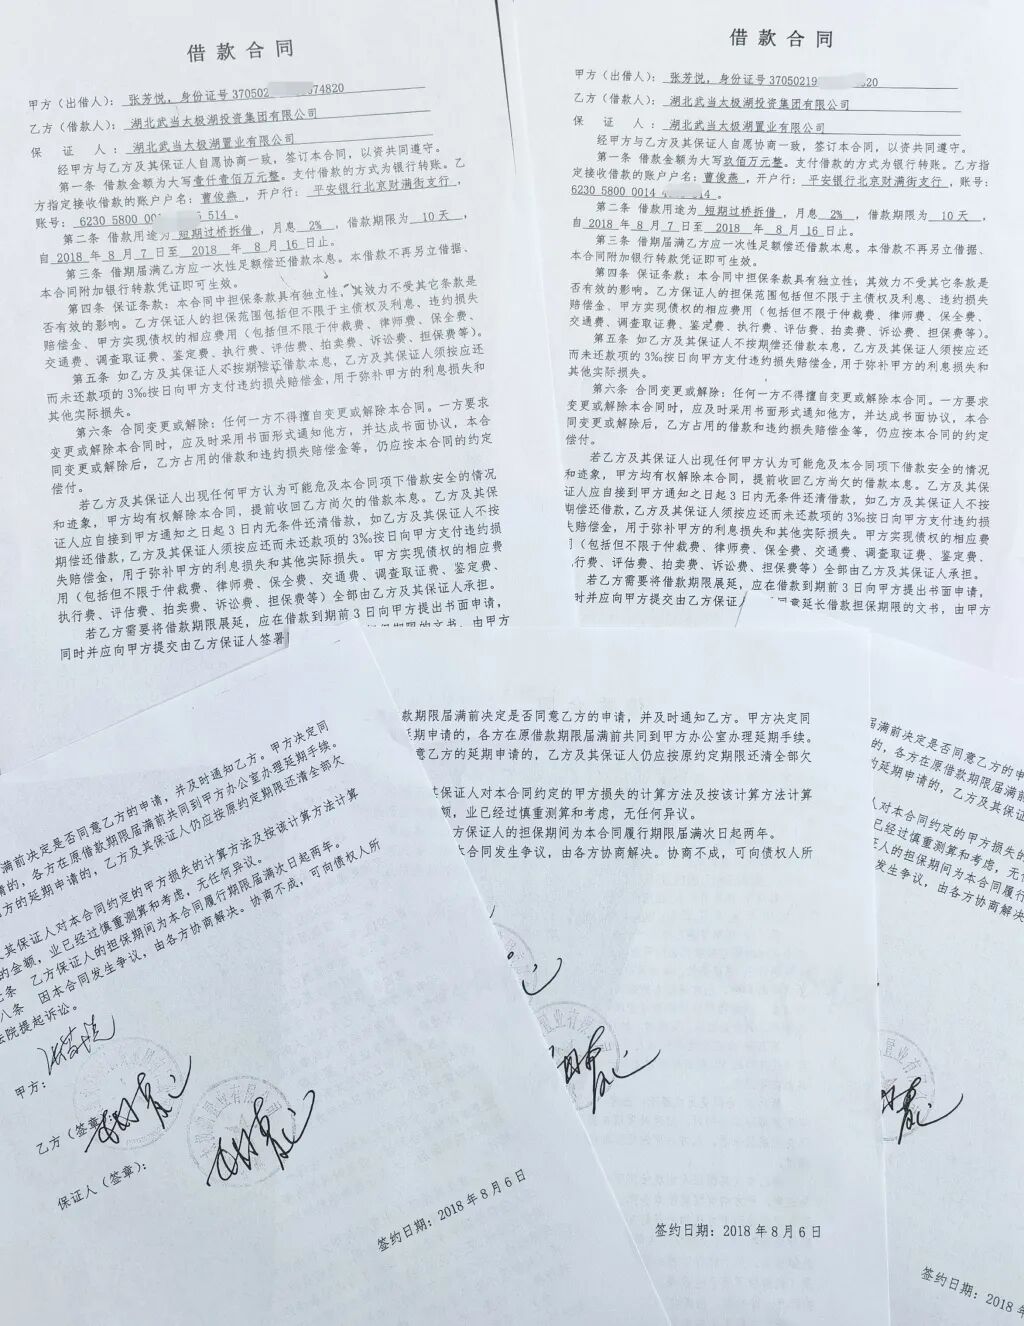 借款合同
甲方（出借人）： 张芳悦，身份证号 370502 074820
乙方（借款人）： 湖北武当太极湖投资集团有限公司
保 证 人： 湖北武当太极湖置业有限公司
经甲方与乙方及其保证人自愿协商一致，签订本合同，以资共同遵守。
第一条 借款金额为大写壹仟壹佰万元整。支付借款的方式为银行转账。乙
方指定接收借款的账户户名：曹俊燕，开户行：平安银行北京财满街支行，
账号：6230 5800 001 5 514 。
第二条 借款用途为 短期过桥拆借 ，月息 2% ，借款期限为 10 天 ，
自 2018 年 8 月 7 日至 2018 年 8 月 16 日止。
第三条 借期届满乙方应一次性足额偿还借款本息。本借款不再另立借据、
本合同附加银行转款凭证即可生效。
第四条 保证条款：本合同中担保条款具有独立性，其效力不受其它条款是
否有效的影响。乙方保证人的担保范围包括但不限于主债权及利息、违约损失
赔偿金、甲方实现债权的相应费用（包括但不限于仲裁费、律师费、保全费、
交通费、调查取证费、鉴定费、执行费、评估费、拍卖费、诉讼费、担保费等）。
第五条 如乙方及其保证人不按期偿还借款本息，乙方及其保证人须按应还
而未还款项的3‰按日向甲方支付违约损失赔偿金，用于弥补甲方的利息损失和
其他实际损失。
第六条 合同变更或解除：任何一方不得擅自变更或解除本合同。一方要求
变更或解除本合同时，应及时采用书面形式通知他方，并达成书面协议，本合
同变更或解除后，乙方占用的借款和违约损失赔偿金等，仍应按本合同的约定
偿付。
若乙方及其保证人出现任何甲方认为可能危及本合同项下借款安全的情况
和迹象，甲方均有权解除本合同，提前收回乙方尚欠的借款本息。乙方及其保
证人应自接到甲方通知之日起3日内无条件还清借款，如乙方及其保证人不按
期偿还借款，乙方及其保证人须按应还而未还款项的3‰按日向甲方支付违约损
失赔偿金，用于弥补甲方的利息损失和其他实际损失。甲方实现债权的相应费
用（包括但不限于仲裁费、律师费、保全费、交通费、调查取证费、鉴定费、
执行费、评估费、拍卖费、诉讼费、担保费等）全部由乙方及其保证人承担。
若乙方需要将借款期限展延，应在借款到期前3日向甲方提出书面申请，
同时并应向甲方提交由乙方保证人签署 担保期限的文书，由甲方
借款合同
甲方（出借人）： 张芳悦，身份证号 37050219 20
乙方（借款人）： 湖北武当太极湖投资集团有限公司
保 证 人： 湖北武当太极湖置业有限公司
经甲方与乙方及其保证人自愿协商一致，签订本合同，以资共同遵守。
第一条 借款金额为大写玖佰万元整。支付借款的方式为银行转账。乙方指
定接收借款的账户户名：曹俊燕，开户行：平安银行北京财满街支行，账号：
6230 5800 0014 514 。
第二条 借款用途为 短期过桥拆借 ，月息 2% ，借款期限为 10 天 ，
自 2018 年 8 月 7 日至 2018 年 8 月 16 日止。
第三条 借期届满乙方应一次性足额偿还借款本息。本借款不再另立借据、
本合同附加银行转款凭证即可生效。
第四条 保证条款：本合同中担保条款具有独立性，其效力不受其它条款是
否有效的影响。乙方保证人的担保范围包括但不限于主债权及利息、违约损失
赔偿金、甲方实现债权的相应费用（包括但不限于仲裁费、律师费、保全费、
交通费、调查取证费、鉴定费、执行费、评估费、拍卖费、诉讼费、担保费等）。
第五条 如乙方及其保证人不按期偿还借款本息，乙方及其保证人须按应还
而未还款项的3‰按日向甲方支付违约损失赔偿金，用于弥补甲方的利息损失和
其他实际损失。
第六条 合同变更或解除：任何一方不得擅自变更或解除本合同。一方要求
变更或解除本合同时，应及时采用书面形式通知他方，并达成书面协议，本合
同变更或解除后，乙方占用的借款和违约损失赔偿金等，仍应按本合同的约定
偿付。
若乙方及其保证人出现任何甲方认为可能危及本合同项下借款安全的情况
和迹象，甲方均有权解除本合同，提前收回乙方尚欠的借款本息。乙方及其保
证人应自接到甲方通知之日起3日内无条件还清借款，如乙方及其保证人不按
期偿还借款，乙方及其保证人须按应还而未还款项的3‰按日向甲方支付违约损
失赔偿金，用于弥补甲方的利息损失和其他实际损失。甲方实现债权的相应费
（包括但不限于仲裁费、律师费、保全费、交通费、调查取证费、鉴定费、
行费、评估费、拍卖费、诉讼费、担保费等）全部由乙方及其保证人承担。
若乙方需要将借款期限展延，应在借款到期前3日向甲方提出书面申请，
时并应向甲方提交由乙方保证 同意延长借款担保期限的文书，由甲方
满前决定是否同意乙方的申请，并及时通知乙方。甲方决定同
请的，各方在原借款期限届满前共同到甲方办公室办理延期手续。
方的延期申请的，乙方及其保证人仍应按原约定期限还清全部欠
其保证人对本合同约定的甲方损失的计算方法及按该计算方法计算
的金额，业已经过慎重测算和考虑，无任何异议。
条 乙方保证人的担保期间为本合同履行期限届满次日起两年。
八条 因本合同发生争议，由各方协商解决。协商不成，可向债权人所
法院提起诉讼。
甲方：
乙方（签章）：
保证人（签章）：
签约日期：2018 年 8 月 6 日
款期限届满前决定是否同意乙方的申请，并及时通知乙方。甲方决定同
延期申请的，各方在原借款期限届满前共同到甲方办公室办理延期手续。
意乙方的延期申请的，乙方及其保证人仍应按原约定期限还清全部欠
其保证人对本合同约定的甲方损失的计算方法及按该计算方法计算
额，业已经过慎重测算和考虑，无任何异议。
方保证人的担保期间为本合同履行期限届满次日起两年。
本合同发生争议，由各方协商解决。协商不成，可向债权人所
置业有限
签约日期：2018 年 8 月 6 日
届满前决定是否同意乙方的申
的，各方在原借款期限届满前
的延期申请的，乙方及其保证
人对本合同约定的甲方损
已经过慎重测算和考虑，无任
证人的担保期间为本合同履行
发生争议，由各方协商解决
置业有
签约日期：2018 年 8 月